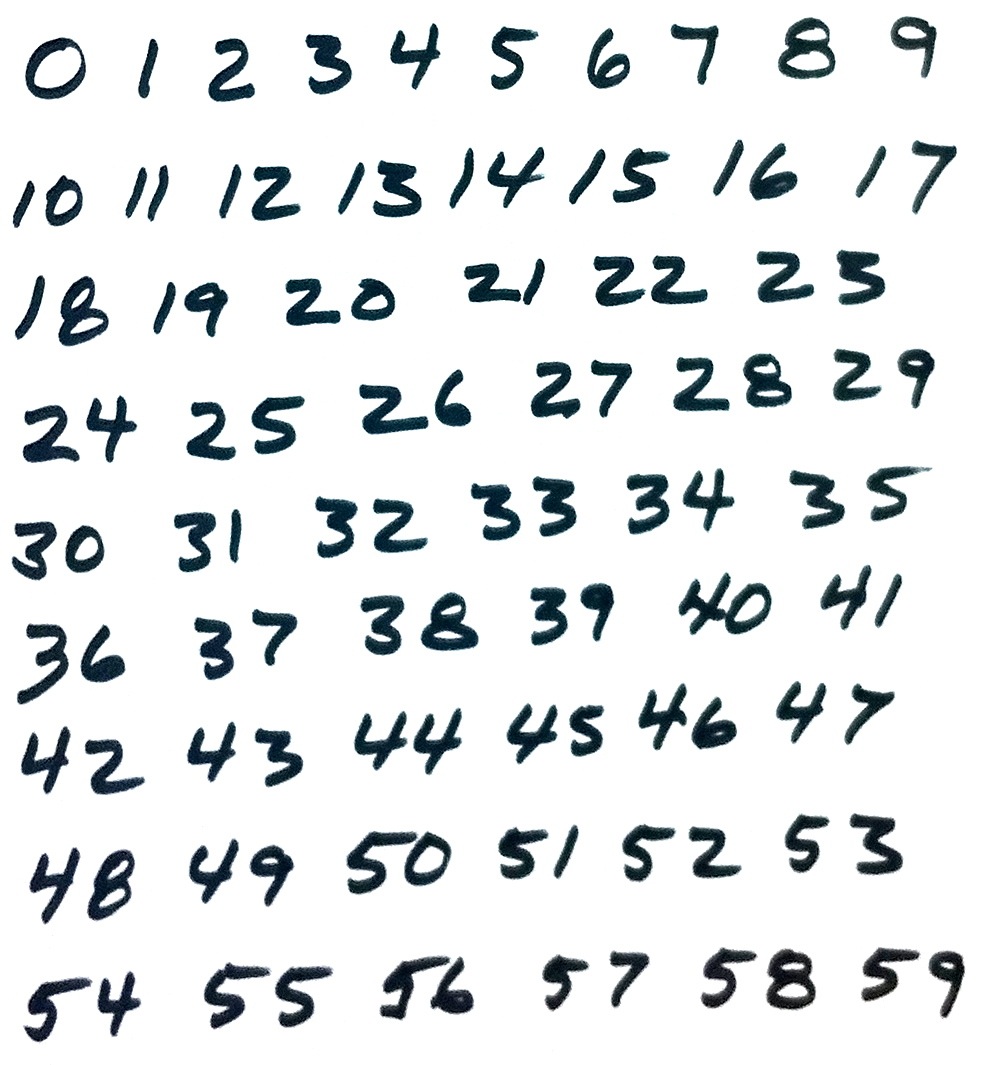 0 1 2 3 4 5 6 7 8 9
10 11 12 13 14 15 16 17
18 19 20 21 22 23
24 25 26 27 28 29
30 31 32 33 34 35
36 37 38 39 40 41
42 43 44 45 46 47
48 49 50 51 52 53
54 55 56 57 58 59